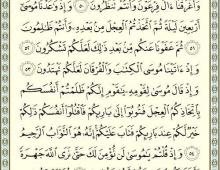 وَأَغْرَقْنَا ءَالَ فِرْعَوْنَ وَأَنتُمْ تَنظُرُونَ ٥٠ وَإِذْ وَٰعَدْنَا مُوسَىٰٓ
أَرْبَعِينَ لَيْلَةً ثُمَّ ٱتَّخَذْتُمُ ٱلْعِجْلَ مِنۢ بَعْدِهِۦ وَأَنتُمْ ظَٰلِمُونَ
٥١ ثُمَّ عَفَوْنَا عَنكُم مِّنۢ بَعْدِ ذَٰلِكَ لَعَلَّكُمْ تَشْكُرُونَ ٥٢
وَإِذْ ءَاتَيْنَا مُوسَى ٱلْكِتَٰبَ وَٱلْفُرْقَانَ لَعَلَّكُمْ تَهْتَدُونَ
٥٣ وَإِذْ قَالَ مُوسَىٰ لِقَوْمِهِۦ يَٰقَوْمِ إِنَّكُمْ ظَلَمْتُمْ أَنفُسَكُم
بِٱتِّخَاذِكُمُ ٱلْعِجْلَ فَتُوبُوٓا۟ إِلَىٰ بَارِئِكُمْ فَٱقْتُلُوٓا۟ أَنفُسَكُمْ ذَٰلِكُمْ
خَيْرٌ لَّكُمْ عِندَ بَارِئِكُمْ فَتَابَ عَلَيْكُمْ إِنَّهُۥ هُوَ ٱلتَّوَّابُ ٱلرَّحِيمُ
٥٤ وَإِذْ قُلْتُمْ يَٰمُوسَىٰ لَن نُّؤْمِنَ لَكَ حَتَّىٰ نَرَى ٱللَّهَ جَهْرَةً